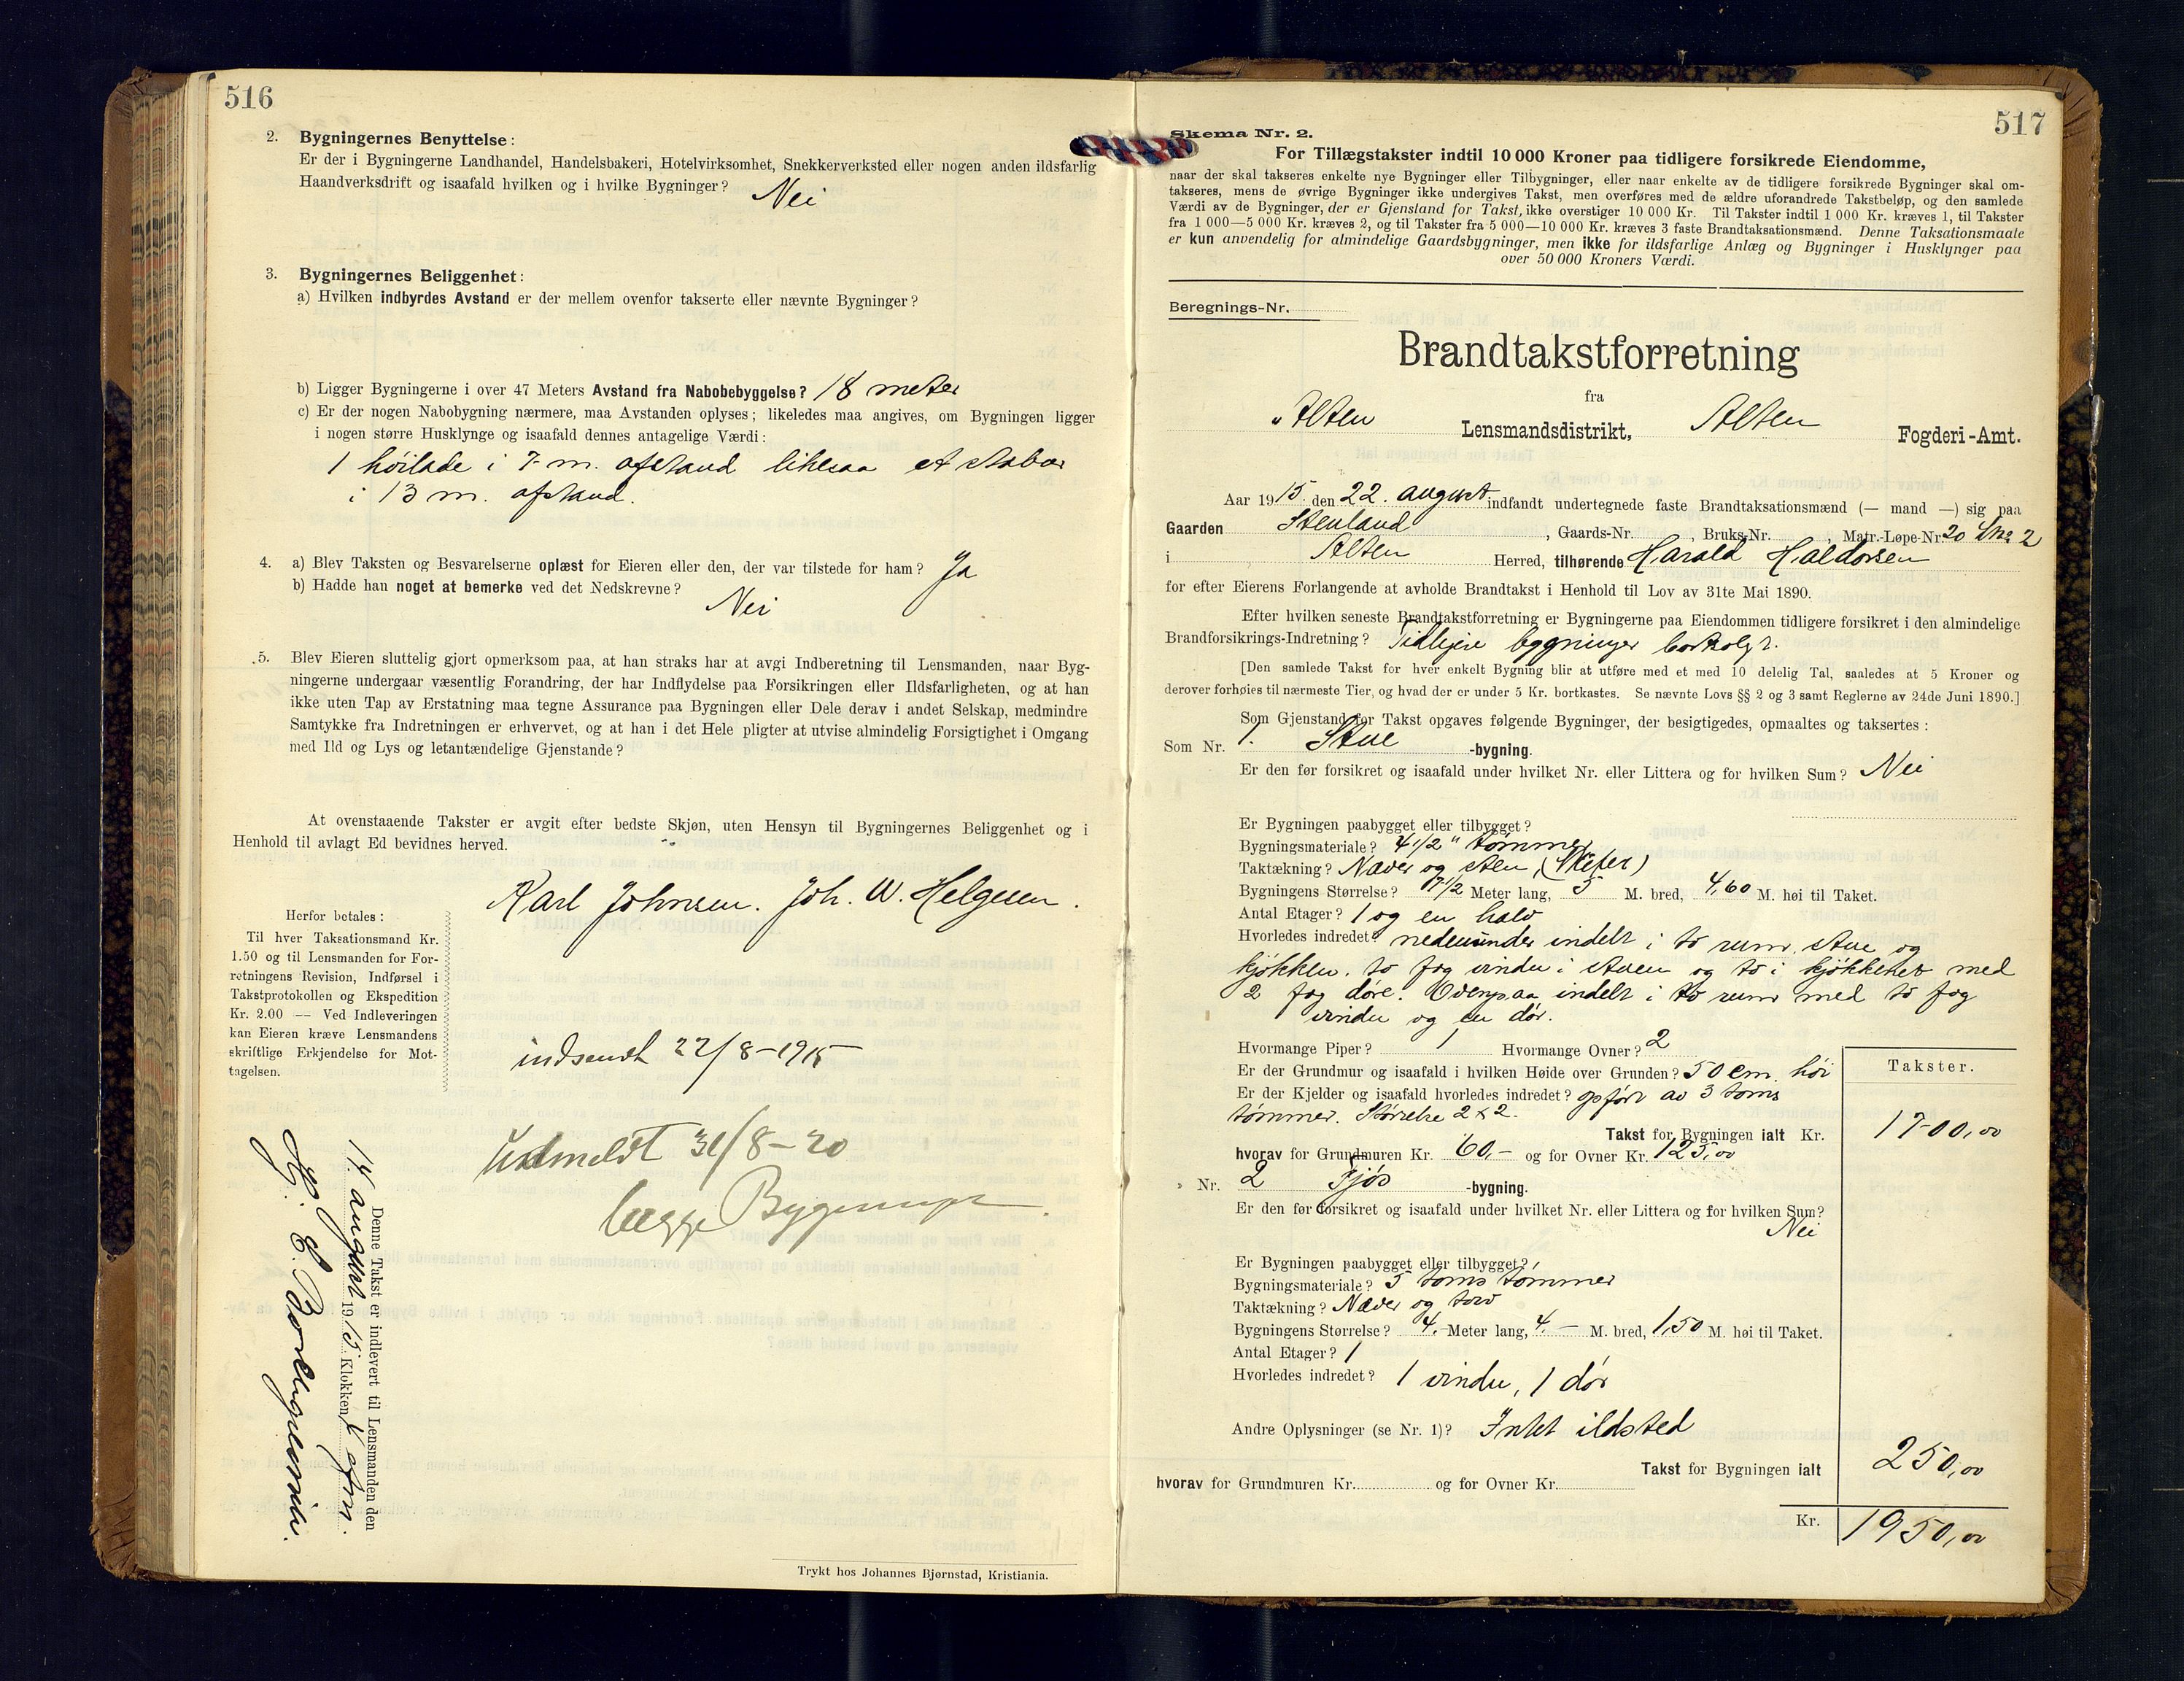 516
2. Bygningernes Benyttelse:
Er der i Bygningerne Landhandel, Handelsbakeri, Hotelvirksomhet, Snekkerverksted eller nogen anden ildsfarlig
Haandverksdrift og isaafald hvilken og i hvilke Bygninger? Nei
3. Bygningernes Beliggenhet:
a) Hvilken indbyrdes Avstand er der mellem ovenfor takserte eller nævnte Bygninger?
b) Ligger Bygningerne i over 47 Meters Avstand fra Nabobebyggelse? 18 meter
c) Er der nogen Nabobygning nærmere, maa Avstanden oplyses; likeledes maa angives, om Bygningen ligger
i nogen større Husklynge og isaafald dennes antagelige Værdi:
1 höilade i 7 m. afstand likesaa et stabur
i 13 m. afstand.
4. a) Blev Taksten og Besvarelserne oplæst for Eieren eller den, der var tilstede for ham? Ja
b) Hadde han noget at bemerke ved det Nedskrevne?
Nei
5. Blev Eieren sluttelig gjort opmerksom paa, at han straks har at avgi Indberetning til Lensmanden, naar Byg-
ningerne undergaar væsentlig Forandring, der har Indflydelse paa Forsikringen eller Ildsfarligheten, og at han
ikke uten Tap av Erstatning maa tegne Assurance paa Bygningen eller Dele derav i andet Selskap, medmindre
Samtykke fra Indretningen er erhvervet, og at han i det Hele pligter at utvise almindelig Forsigtighet i Omgang
med Ild og Lys og letantændelige Gjenstande?
At ovenstaaende Takster er avgit efter bedste Skjøn, uten Hensyn til Bygningernes Beliggenhet og i
Henhold til avlagt Ed bevidnes herved.
Karl Johnsen. Joh. W. Helgesen.
Herfor betales:
Til hver Taksationsmand Kr.
1.50 og til Lensmanden for For-
retningens Revision, Indførsel i
Takstprotokollen og Ekspedition
Kr. 2.00 — Ved Indleveringen
kan Eieren kræve Lensmandens
skriftlige Erkjendelse for Mot-
tagelsen.
indsendt 22/8-1915
Udmeldt 31/8-20
begge Bygninger
Denne Takst er indlevert til Lensmanden den
14. august 1915 Klokken efm.
Trykt hos Johannes Bjørnstad, Kristiania.
517
Skema Nr. 2.
For Tillægstakster indtil 10 000 Kroner paa tidligere forsikrede Eiendomme,
naar der skal takseres enkelte nye Bygninger eller Tilbygninger, eller naar enkelte av de tidligere forsikrede Bygninger skal om-
takseres, mens de øvrige Bygninger ikke undergives Takst, men overføres med de ældre uforandrede Takstbeløp, og den samlede
Værdi av de Bygninger, der er Gjenstand for Takst, ikke overstiger 10 000 Kr. Til Takster indtil 1 000 Kr. kræves 1, til Takster
fra 1 000—5 000 Kr. kræves 2, og til Takster fra 5 000—10 000 Kr. kræves 3 faste Brandtaksationsmænd. Denne Taksationsmaate
er kun anvendelig for almindelige Gaardsbygninger, men ikke for ildsfarlige Anlæg og Bygninger i Husklynger paa
over 50 000 Kroners Værdi.
Beregnings-Nr.
Brandtakstforretning
fra
Alten Lensmandsdistrikt, Alten Fogderi-Amt.
Aar 1915 den 22. august indfandt undertegnede faste Brandtaksationsmænd (— mand —) sig paa
Gaarden Stenland, Gaards-Nr. , Bruks-Nr. , Matr.-Løpe-Nr. 20 2
i Alten Herred, tilhørende Harald Haldorsen
for efter Eierens Forlangende at avholde Brandtakst i Henhold til Lov av 31te Mai 1890.
Efter hvilken seneste Brandtakstforretning er Bygningerne paa Eiendommen tidligere forsikret i den almindelige
Brandforsikrings-Indretning? Tidligere bygninger bortsolgt.
[Den samlede Takst for hver enkelt Bygning blir at utføre med et med 10 delelig Tal, saaledes at 5 Kroner og
derover forhøies til nærmeste Tier, og hvad der er under 5 Kr. bortkastes. Se nævnte Lovs §§ 2 og 3 samt Reglerne av 24de Juni 1890.]
Som Gjenstand for Takst opgaves følgende Bygninger, der besigtigedes, opmaaltes og taksertes:
Som Nr. 1. Stue -bygning.
Er den før forsikret og isaafald under hvilket Nr. eller Littera og for hvilken Sum? Nei
Er Bygningen paabygget eller tilbygget?
Bygningsmateriale? 4 1/2 " tömmer
Taktækning? Næver og sten, (Skifer)
Bygningens Størrelse? 7 1/2 Meter lang, 5 M. bred, 4,60 M. høi til Taket.
Antal Etager? 1 og en halv
Hvorledes indredet? nedenunder indelt i to rum, stue og
kjökken. to fag vindu i stuen og to i kjökkenet med
2 fag döre. Ovenpaa indelt i to rum med to fag
vindu og en dör.
Hvormange Piper? 1 Hvormange Ovner? 2
Er der Grundmur og isaafald i hvilken Høide over Grunden? 50 cm. höi
Er der Kjelder og isaafald hvorledes indredet? opført av 3 toms
tömmer. Störrelse 2 x 2.
Takster.
Takst for Bygningen ialt Kr. 1700,00
hvorav for Grundmuren Kr. 60,- og for Ovner Kr. 125,00
" Nr. 2 Fjös -bygning.
Er den før forsikret og isaafald under hvilket Nr. eller Littera og for hvilken Sum?
Nei
Er Bygningen paabygget eller tilbygget?
Bygningsmateriale? 5 toms tömmer
Taktækning? Næver og torv
Bygningens Størrelse? 4.- Meter lang, 4.- M. bred, 1,50 M. høi til Taket.
Antal Etager? 1
Hvorledes indredet? 1 vindu, 1 dör
Andre Oplysninger (se Nr. 1)? Intet ildsted
Takst for Bygningen ialt 250,00
hvorav for Grundmuren Kr. og for Ovner Kr.
Kr. 1950,00